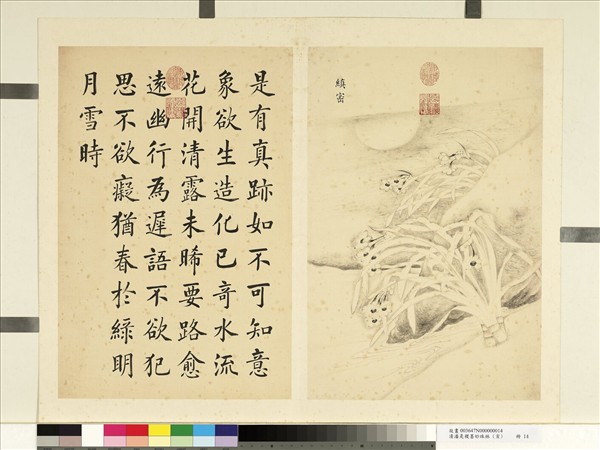 縝密
是有真跡如不可知意
象欲生造化已奇水流
花開清露未晞要路愈
遠幽行為遲語不欲犯
思不欲癡猶春於綠明
月雪時
故畫 003647N000000014